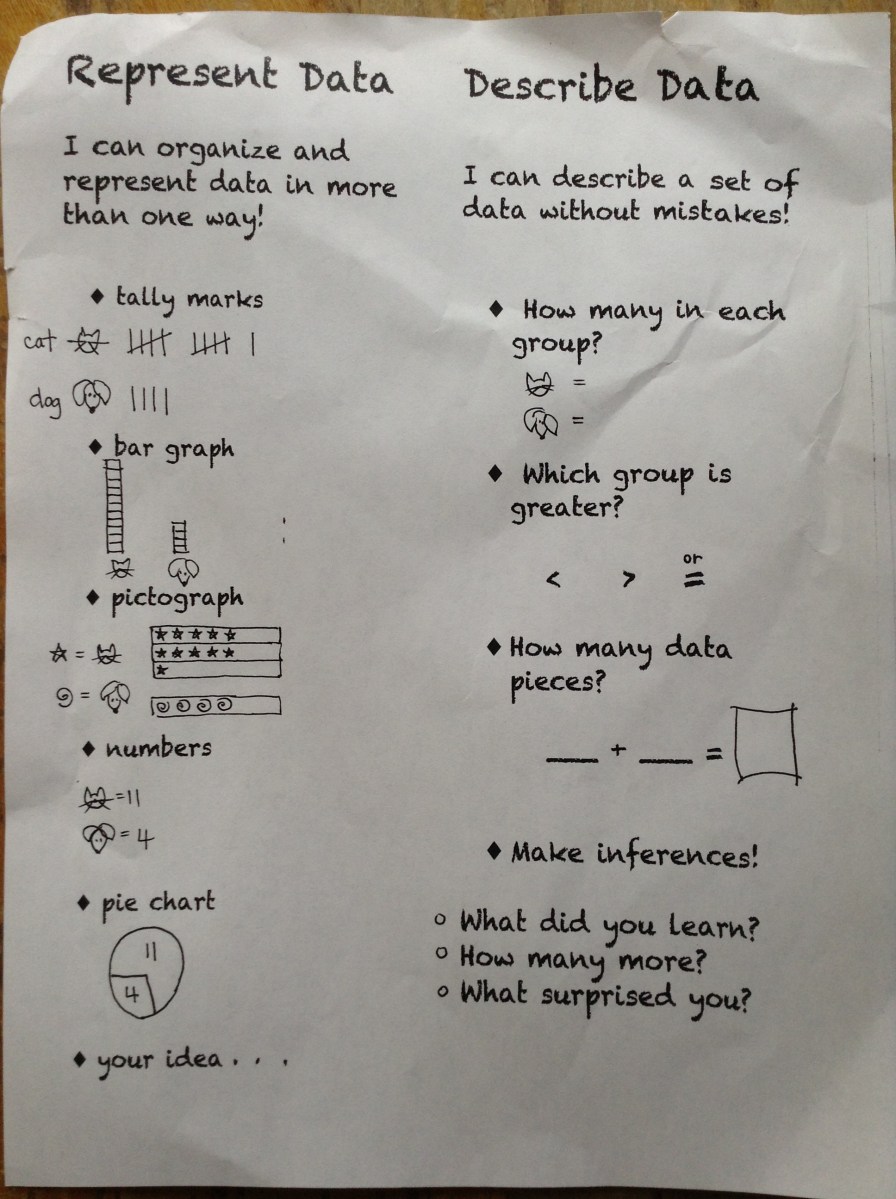 Represent Data
I can organize and
represent data in more
than one way!
♦ tally marks
cat
dog
♦ bar graph
♦ pictograph
=
=
♦ numbers
=11
=4
♦ pie chart
11
4
♦ your idea . . .
Describe Data
I can describe a set of
data without mistakes!
♦ How many in each
group?
=
=
♦ Which group is
greater?
or
< > =
♦ How many data
pieces?
___ + ___ =
♦ Make inferences!
o What did you learn?
o How many more?
o What surprised you?